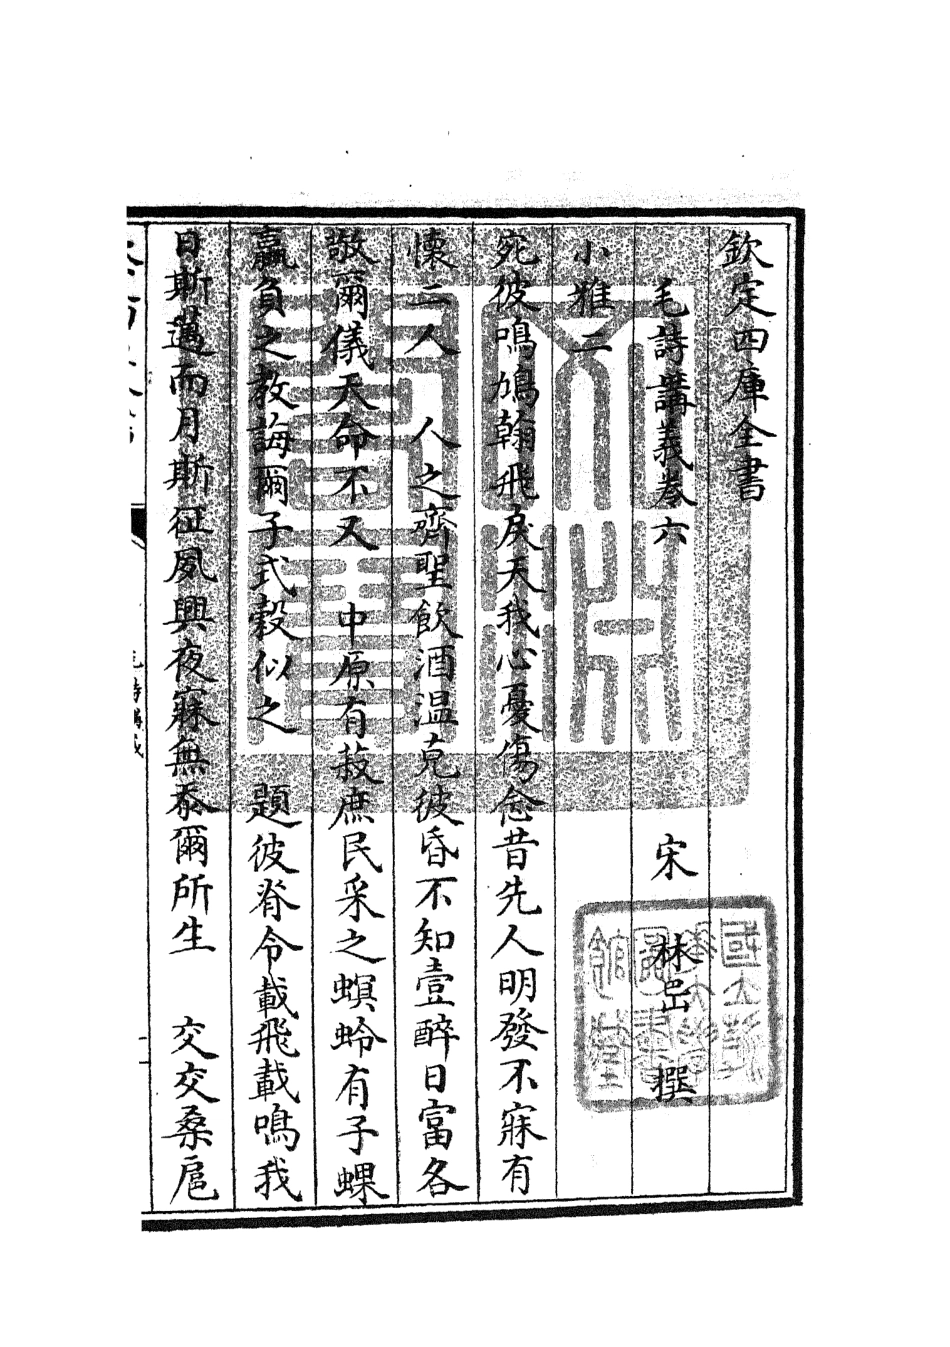 欽定四庫全書
毛詩講義卷六　宋　林岊　撰
小雅二
宛彼鳴鳩翰飛戾天我心憂傷念昔先人明發不寐有
懷二人　人之齊聖飲酒温克彼昏不知壹醉日富各
敬爾儀天命不又　中原有菽庶民采之螟蛉有子蜾
蠃負之教誨爾子式穀似之　題彼脊令載飛載鳴我
日斯邁而月斯征夙興夜寐無忝爾所生　交交桑扈